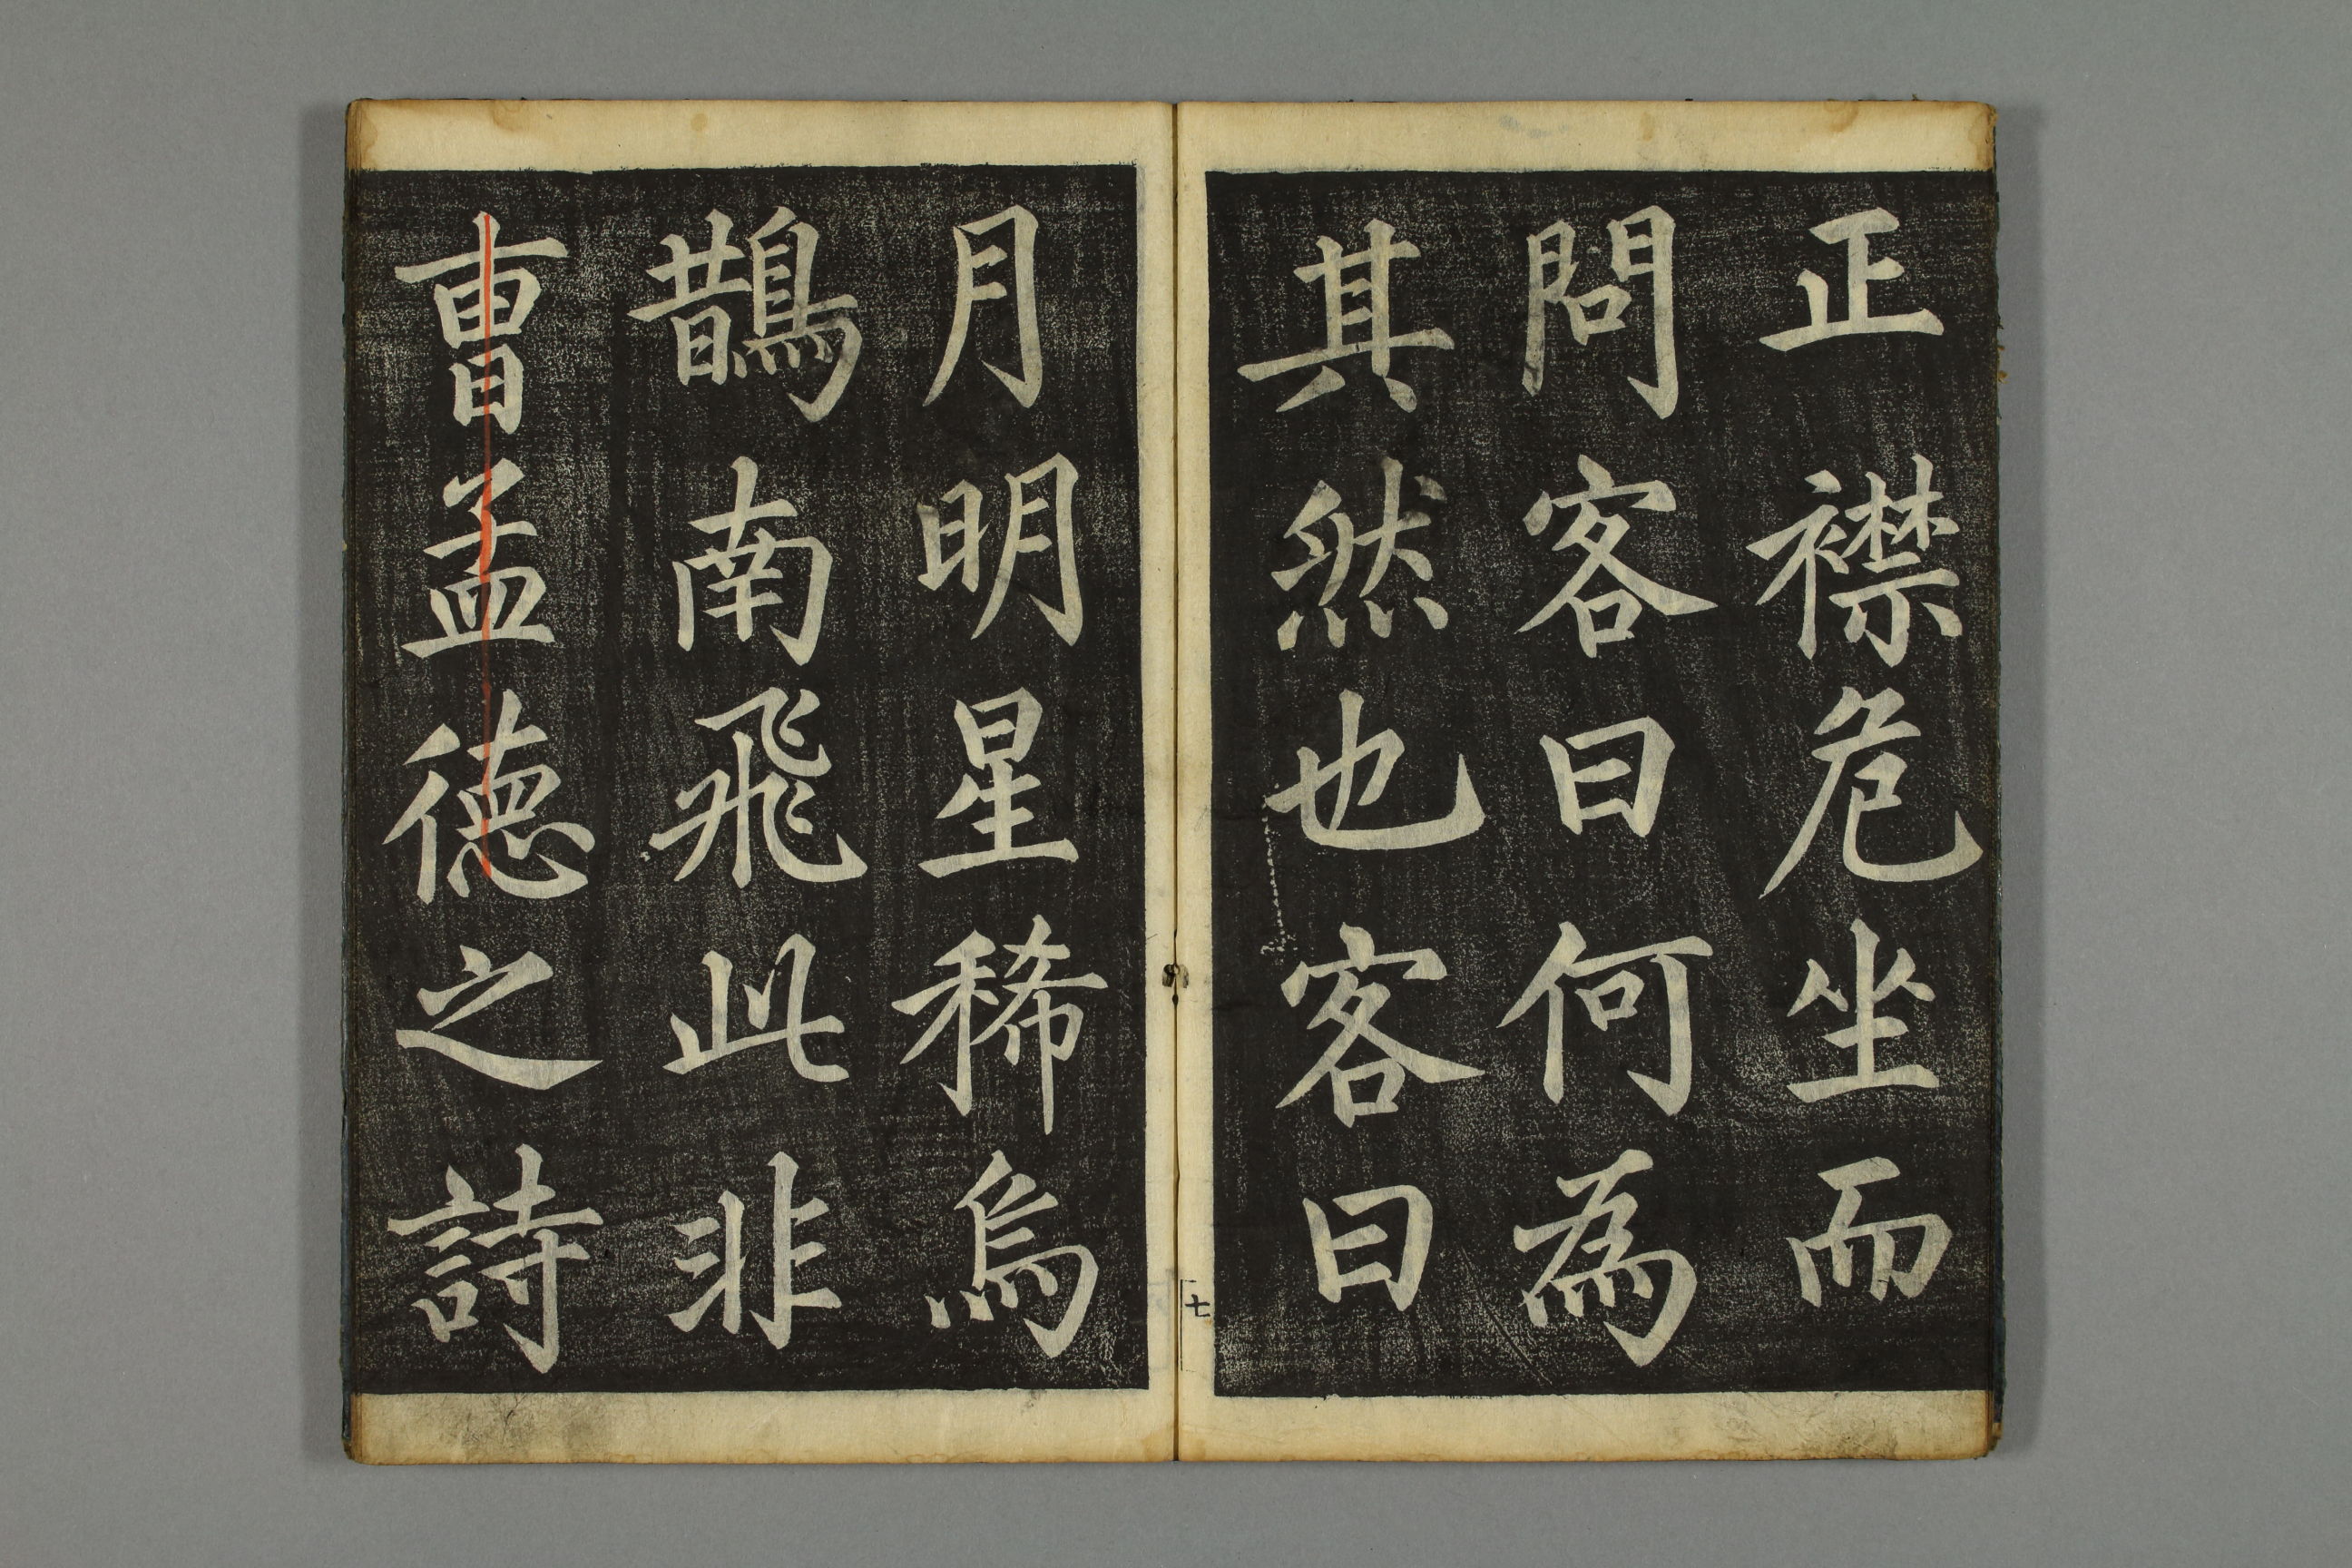 正襟危坐而
問客曰何為
其然也客曰
七
月明星稀烏
鵲南飛此非
曹孟德之詩